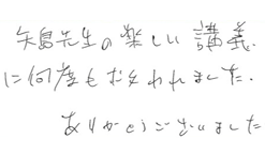 矢島先生の楽しい講義
に何度もおそわれました.
ありがとうございました